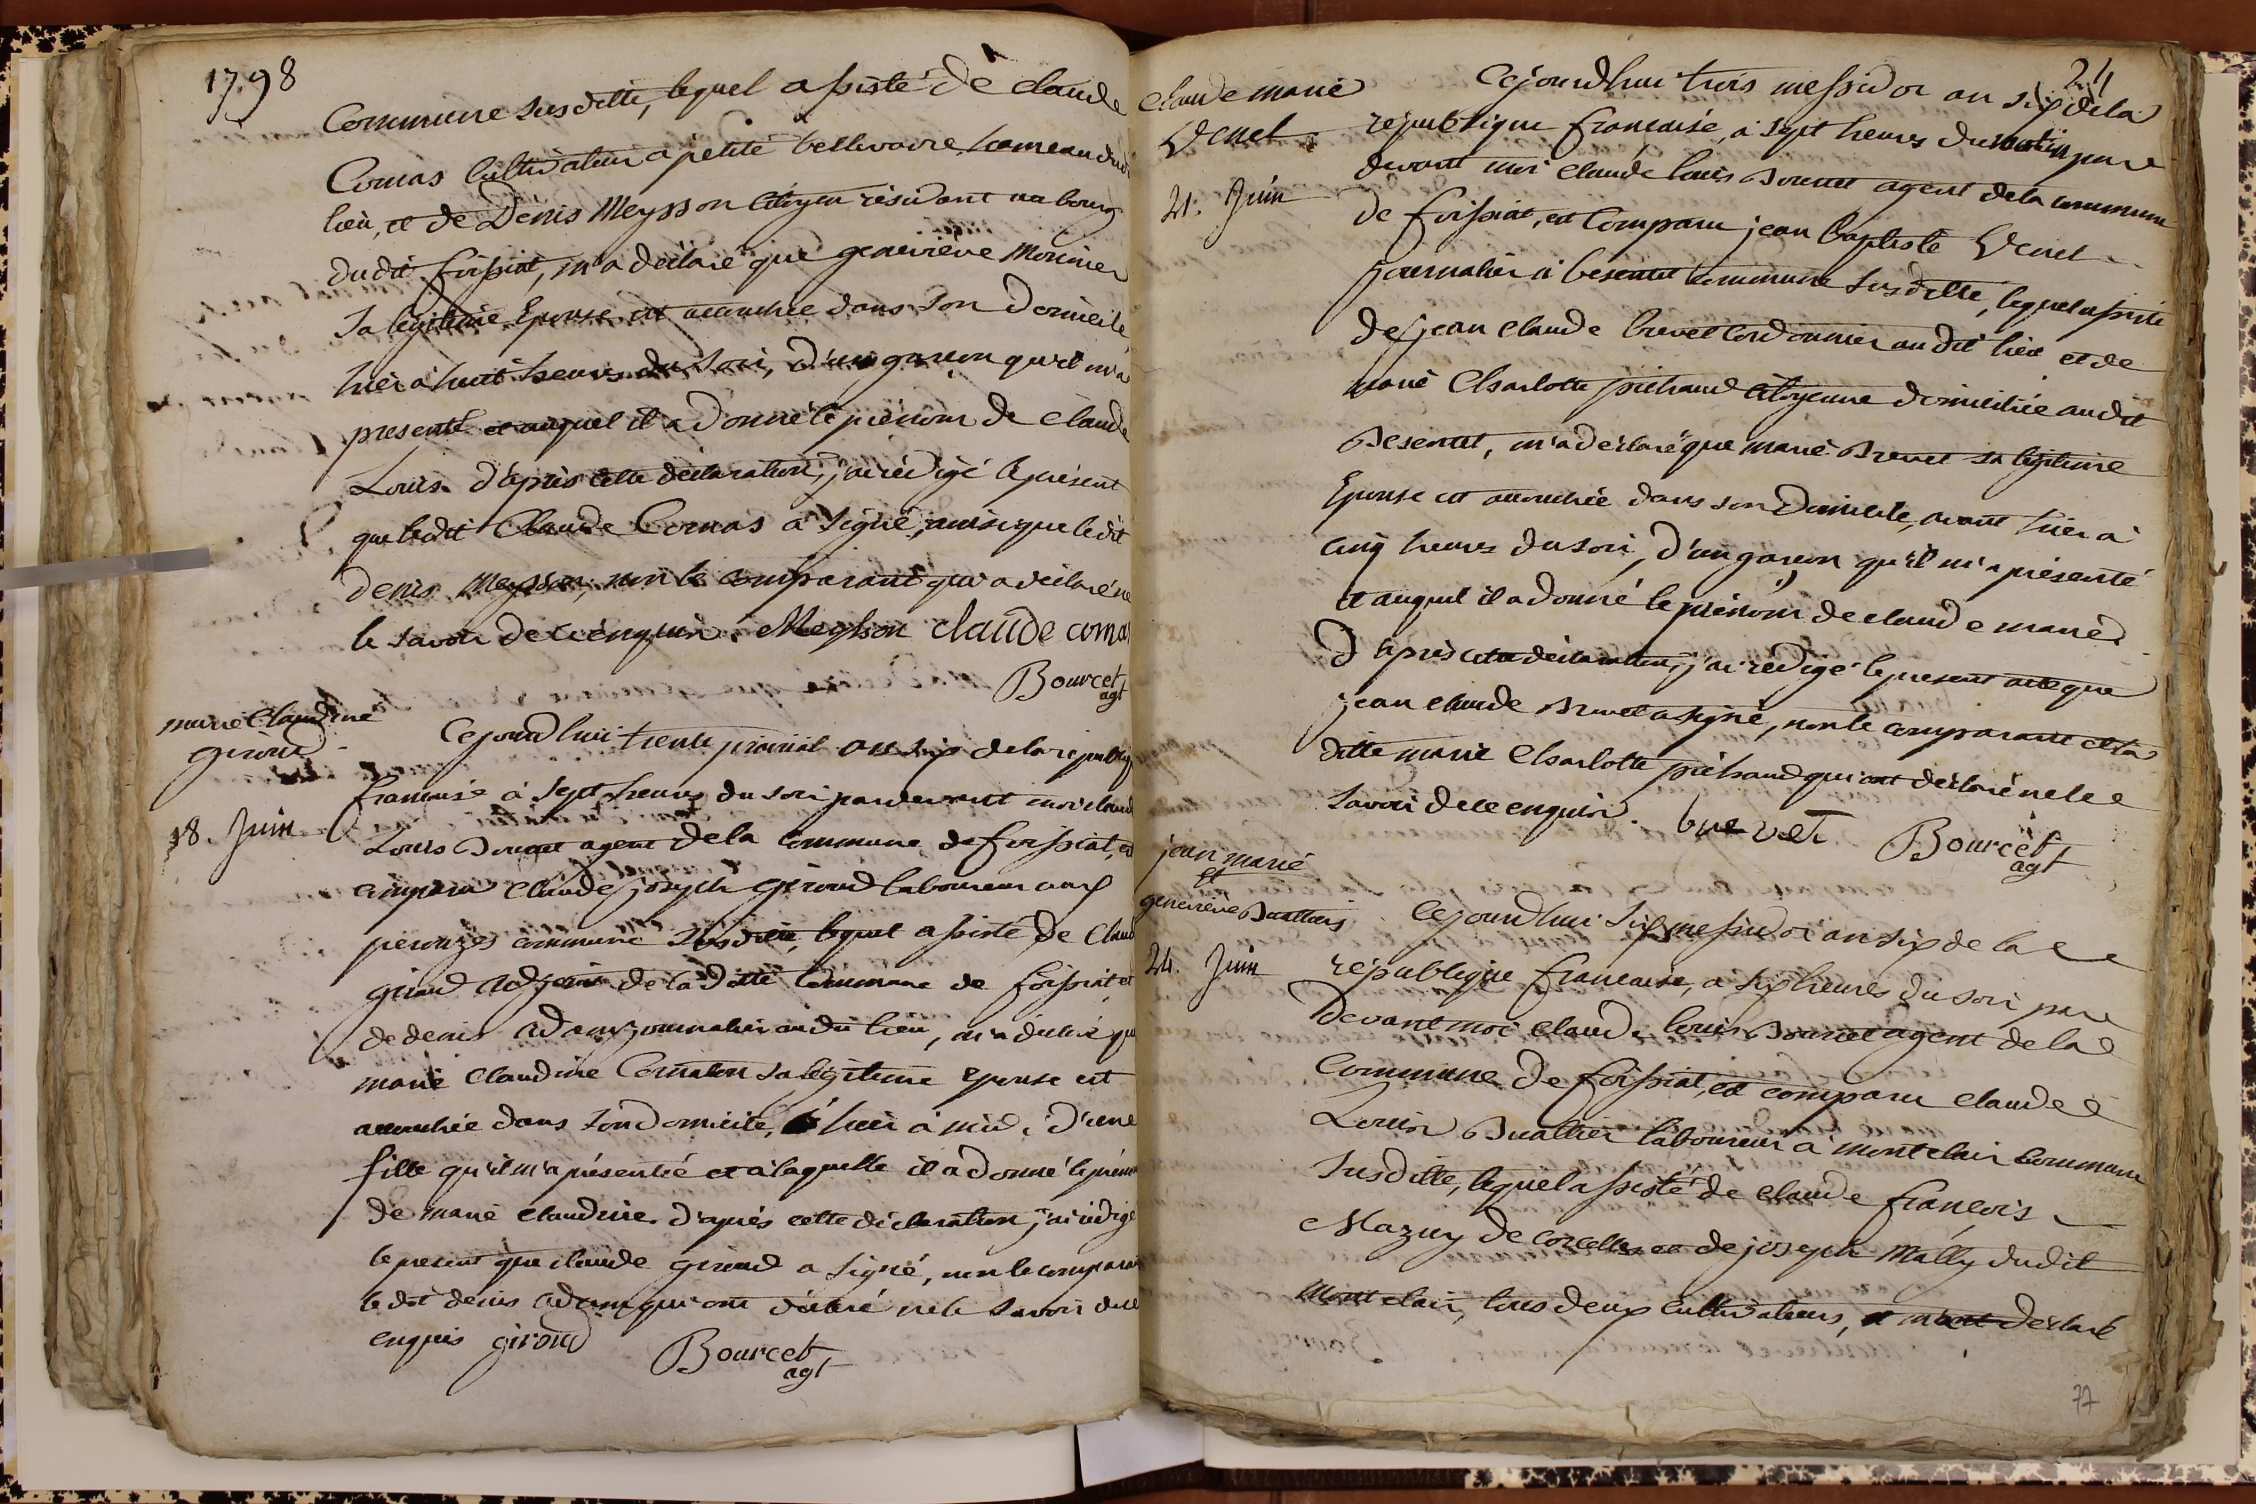 1798
Commune susditte, lequel assisté de claude
Comas Cultivateur a petite bellevavre hameau dudit
lieu, et de Denis Meysson Citoyen résidant au bourg
dudit foissiat, m'a déclaré que genevieve Morinier
sa légitime Epouse est accouchée dans son Domicile
hier à huit heures du soir, d'un garçon qu'il m'a
présenté et auquel il a donné le prénom de Claude
Louis. d'après cette déclaration, j'ai rédigé le présent
que ledit Claude Comas a signé, ainsi que le dit
denis Meysson, non le comparant qui a déclaré ne
le savoir de ce enquis. Meysson claude comas
Bourcet
agt
marie Claudine
giroud
18. Juin
Cejourdhui trente prairial an six de la republiq
francaise à sept heures du soir pardevant moi claud
Louis Bourcet agent de la commune de foissiat, est
comparu Claude joseph Giroud laboureur aux
perouzes commune susditte, lequel assisté de Claud
giroud adjoint de la ditte Commune de foissiat et
de denis Adam journalier audit lieu, m'a déclaré que
marie Claudine Comaton sa légitime Epouse est
accouchée dans son domicile, hier à midi, d'une
fille qu'il m'a présentée et à laquelle il a donné le prénom
de marie claudine. d'après cette déclaration j'ai rédigé
le présent que claude giroud a signé, non le comparant
le dit denis Adam qui ont déclaré ne le savoir de ce
enquis giroud
Bourcet
agt
24
claude marie
Venet
21. Juin
Cejourdhui trois messidor an six de la
république francaise, à sept heures du matin par
devant moi claude louis Bourcet agent de la commune
de foissiat, est Comparu jean baptiste Venet
journalier à besentet commune susditte, lequel assisté
de jean claude brevet Cordonnier au dit lieu et de
marie Charlotte pichaud Citoyenne domiciliée audit
Besentet, m'a déclaré que marie Brevet sa légitime
Epouse est accouchée dans son Domicile, avant hier à
cinq heures du soir, d'un garçon qu'il m'a présenté
et auquel il a donné le prénom de claude marie.
D'après cette déclaration, j'ai rédigé le présent acte que
jean claude Brevet a signé, non le comparant et la
ditte marie Charlotte pichaud qui ont déclaré ne le
savoir de ce enquis. brevet Bourcet
agt
jean marie
et
genevieve Buathier
24. Juin
Cejourdhui six messidor an six de la
république francaise, a six heures du soir par
Devant moi claude louis Bourcet agent de la
Commune de foissiat, est comparu claude
Louis Buathier laboureur à montclair Commune
susditte, lequel assisté de claude françois
Mazuy de Corcelles et de joseph Mally dudit
Montclair, tous deux cultivateurs, m'a déclaré
77